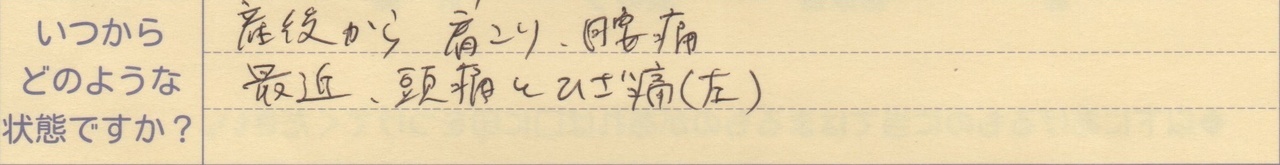 いつから
どのような
状態ですか？
産後から 肩こり、腰痛
最近、頭痛とひざ痛(左)